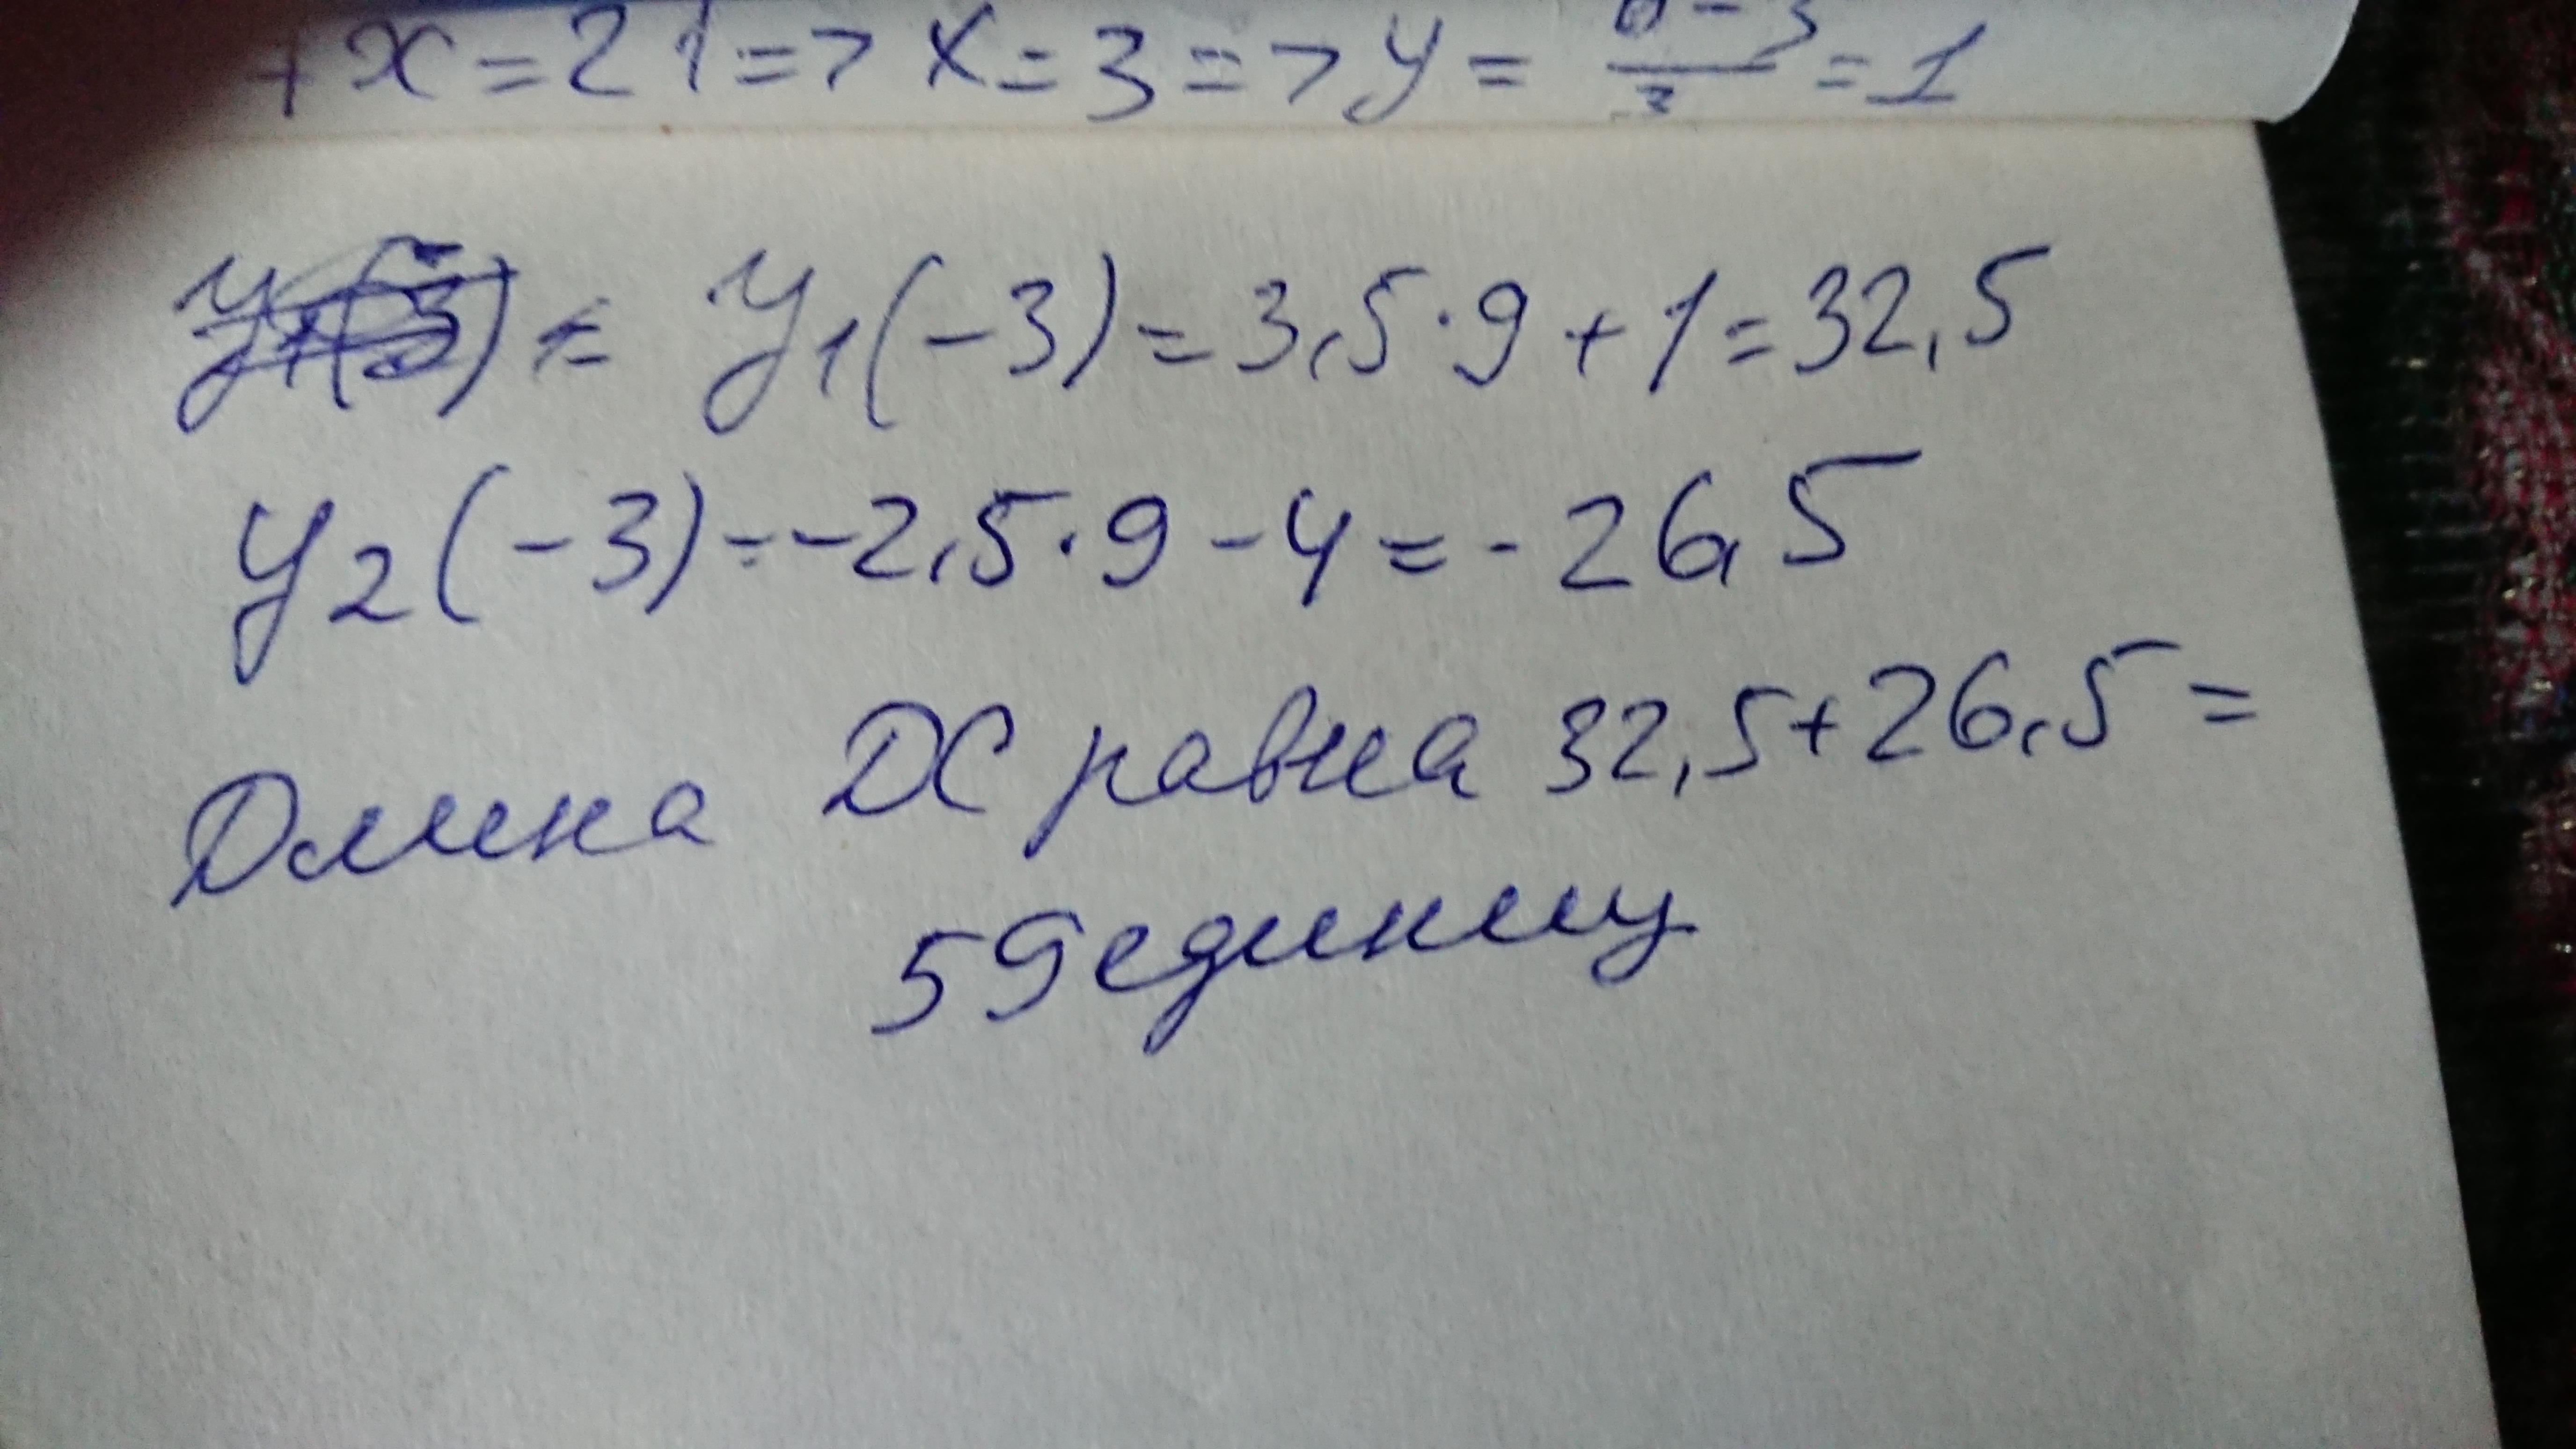 + x = 21 => x = 3 => y = 6-3/3 = 1
y₁(-3) = 3,5·9 + 1 = 32,5
y₂(-3) = -2,5·9 - 4 = -26,5
Длина DC равна 32,5 + 26,5 =
59 единиц